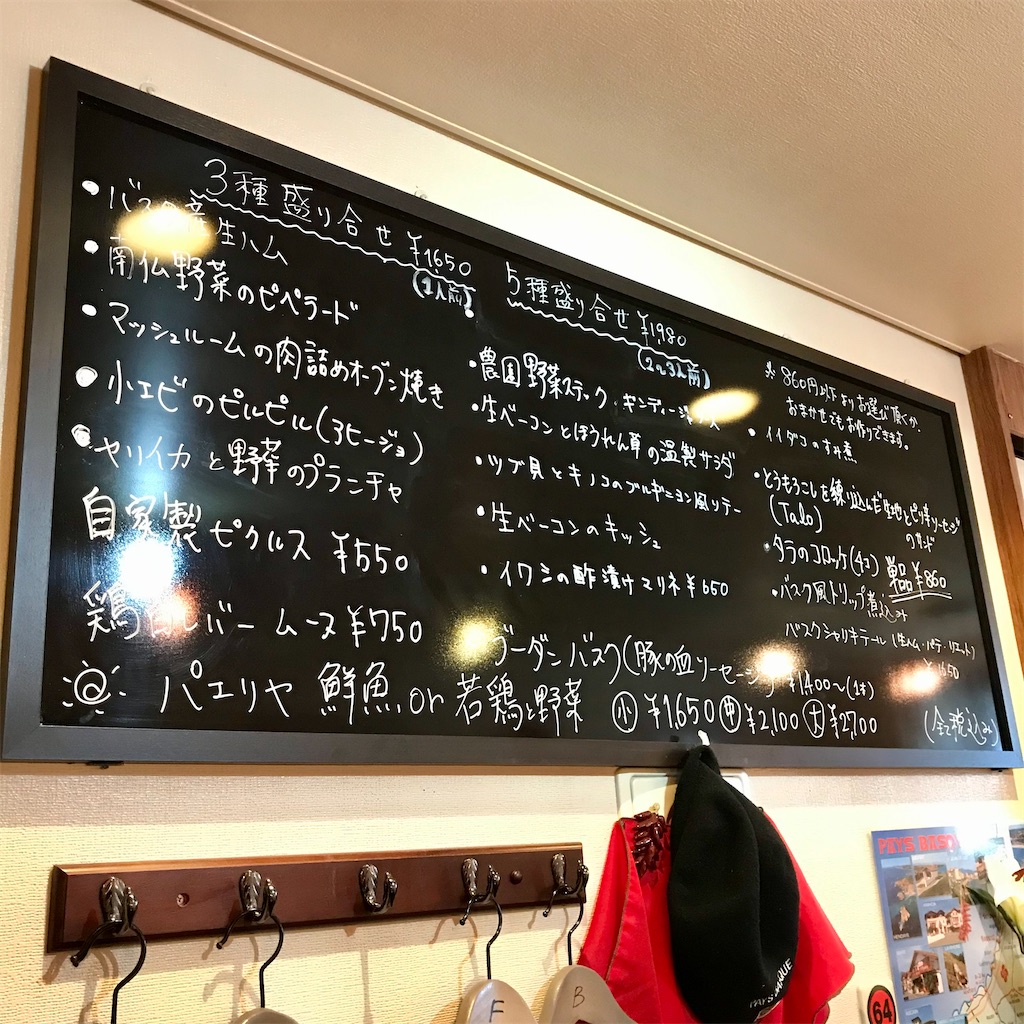 3種盛り合せ ¥1,650
(1人前)
・バスク産生ハム
・南仏野菜のピペラード
・マッシュルームの肉詰めオーブン焼き
・小エビのピルピル(アヒージョ)
・ヤリイカと野菜のプランチャ
自家製ピクルス ¥550
鶏白レバームース ¥750
5種盛り合せ ¥1,980
(2〜3人前)
・農園野菜スティック
・生ベーコンとほうれん草の温製サラダ
・ツブ貝とキノコのブルギニヨン風ソテー
・生ベーコンのキッシュ
・イワシの酢漬けマリネ ¥650
※860円以下よりお選び頂くか、
おまかせでもお作りできます。
・イイダコのすみ煮
・とうもろこしを練り込んだ生地とピリ辛ソーセージ
のサンド
(Talo)
・タラのコロッケ(4コ) 単品¥860
・バスク風トリップ煮込み
バスクシャリキテール(生ハム・パテ・リエット)
ブーダンバスク(豚の血ソーセージ) ¥1,400〜(1本)
パエリヤ 鮮魚 or 若鶏と野菜 小 ¥1,650 中 ¥2,100 大 ¥2,700
(全て税込み)
F
B
PAYS BASQUE
PAYS BASQUE
64